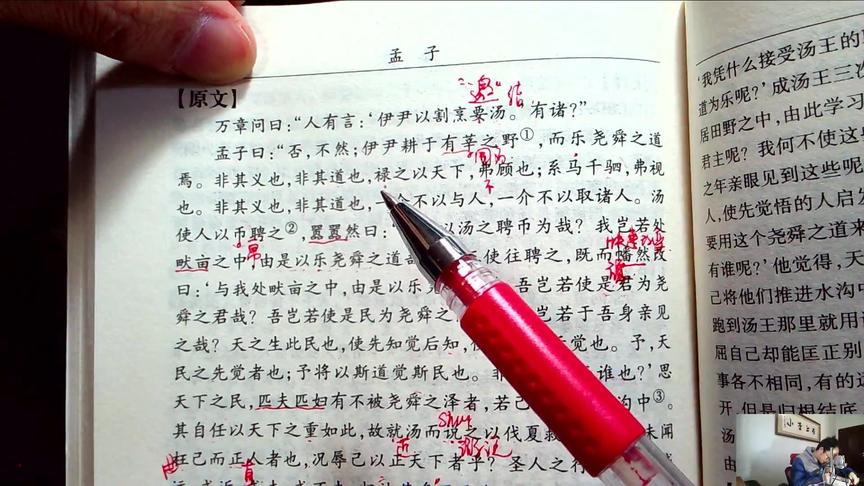 孟 子
【原文】
万章问曰：“人有言：‘伊尹以割烹要汤。’有诸？”
孟子曰：“否，不然；伊尹耕于有莘之野①，而乐尧舜之道
焉。非其义也，非其道也，禄之以天下，弗顾也；系马千驷，弗视
也。非其义也，非其道也，一介不以与人，一介不以取诸人。汤
使人以币聘之②，嚣嚣然曰：‘以汤之聘币为哉？我岂若处
畎亩之中，由是以乐尧舜之道 使往聘之，既而幡然改
曰：‘与我处畎亩之中，由是以乐 君为尧
舜之君哉？吾岂若使是民为尧舜之 若于吾身亲见
之哉？天之生此民也，使先知觉后知， 觉也。予，天
民之先觉者也；予将以斯道觉斯民也。 谁也？’思
天下之民，匹夫匹妇有不被尧舜之泽者，若己 沟中③。
其自任以天下之重如此，故就汤而说之以伐夏救 未闻
枉己而正人者也，况辱己以正天下者乎？圣人之行
“邀”
不
shuì
游说
‘我凭什么接受汤王的
道为乐呢？’成汤王三次
居田野之中，由此学习
君主呢？我何不使这
之年亲眼见到这些呢
人，使先觉悟的人启发
要用这个尧舜之道来
有谁呢？’他觉得，天
己将他们推进水沟中
跑到汤王那里就用
屈自己却能匡正别
事各不相同，有的远
开，但是归根结底